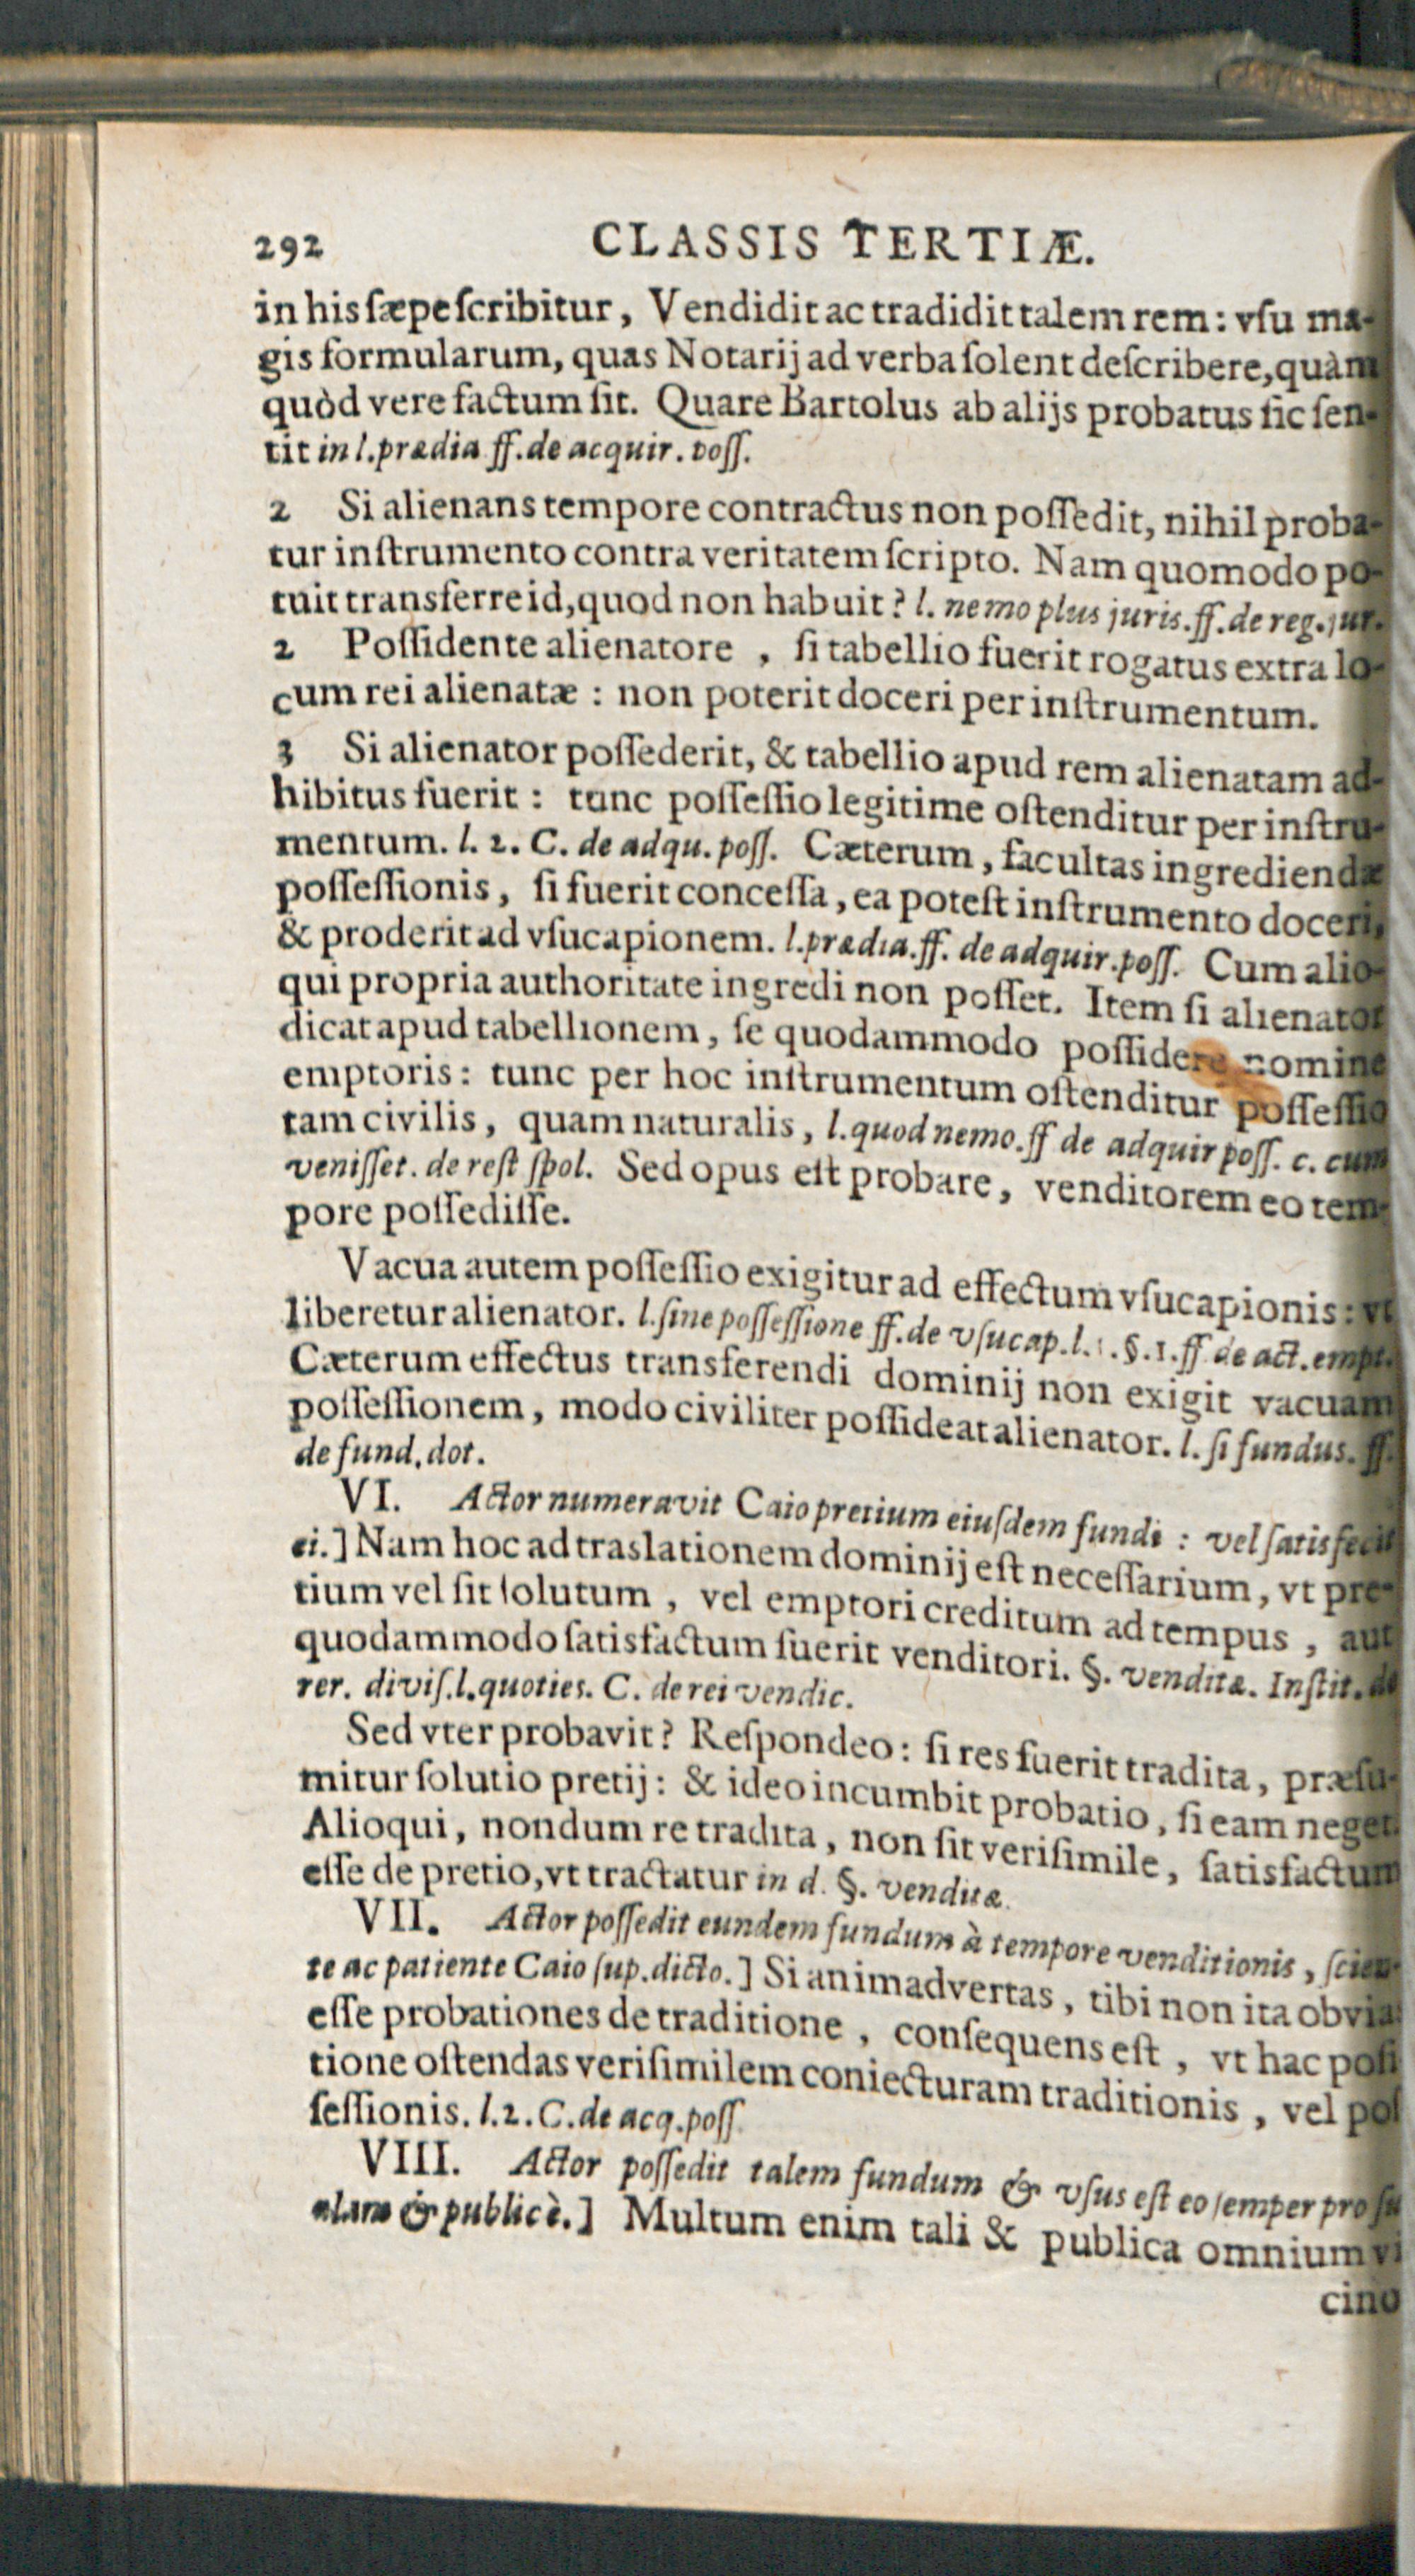 292 CLASSIS TERTIÆ.
in his sæpe scribitur, Vendidit ac tradidit talem rem: vsu ma-
gis formularum, quas Notarij ad verba solent describere, quàm
quòd vere factum sit. Quare Bartolus ab alijs probatus sic sen-
tit in l. prædia ff. de acquir. poss.
2 Si alienans tempore contractus non possedit, nihil proba-
tur instrumento contra veritatem scripto. Nam quomodo po-
tuit transferre id, quod non habuit? l. nemo plus juris. ff. de reg. jur.
2 Possidente alienatore, si tabellio fuerit rogatus extra lo-
cum rei alienatæ: non poterit doceri per instrumentum.
3 Si alienator possederit, & tabellio apud rem alienatam ad-
hibitus fuerit: tunc possessio legitime ostenditur per instru-
mentum. l. 2. C. de adqu. poss. Cæterum, facultas ingrediendæ
possessionis, si fuerit concessa, ea potest instrumento doceri,
& proderit ad vsucapionem. l. prædia. ff. de adquir. poss. Cum alio-
qui propria authoritate ingredi non posset. Item si alienator
dicat apud tabellionem, se quodammodo possidere nomine
emptoris: tunc per hoc instrumentum ostenditur possessio
tam civilis, quam naturalis, l. quod nemo. ff de adquir poss. c. cum
venisset. de rest spol. Sed opus est probare, venditorem eo tem-
pore possedisse.
Vacua autem possessio exigitur ad effectum vsucapionis: vt
liberetur alienator. l. sine possessione ff. de vsucap. l. §. 1. ff de act. empt.
Cæterum effectus transferendi dominij non exigit vacuam
possessionem, modo civiliter possideat alienator. l. si fundus. ff.
de fund. dot.
VI. Actor numeravit Caio pretium eiusdem fundi: vel satisfecit
ei.] Nam hoc ad traslationem dominij est necessarium, vt pre-
tium vel sit solutum, vel emptori creditum ad tempus, aut
quodammodo satisfactum fuerit venditori. §. venditæ. Instit. de
rer. divis. l. quoties. C. de rei vendic.
Sed vter probavit? Respondeo: si res fuerit tradita, præsu-
mitur solutio pretij: & ideo incumbit probatio, si eam neget.
Alioqui, nondum re tradita, non sit verisimile, satisfactum
esse de pretio, vt tractatur in d. §. venditæ.
VII. Actor possedit eundem fundum à tempore venditionis, scien-
te ac patiente Caio sup. dicto.] Si animadvertas, tibi non ita obvia
esse probationes de traditione, consequens est, vt hac posi
tione ostendas verisimilem coniecturam traditionis, vel pos
sessionis. l. 2. C. de acq. poss
VIII. Actor possedit talem fundum & vsus est eo semper pro su
& publicè.] Multum enim tali & publica omnium vi
cino